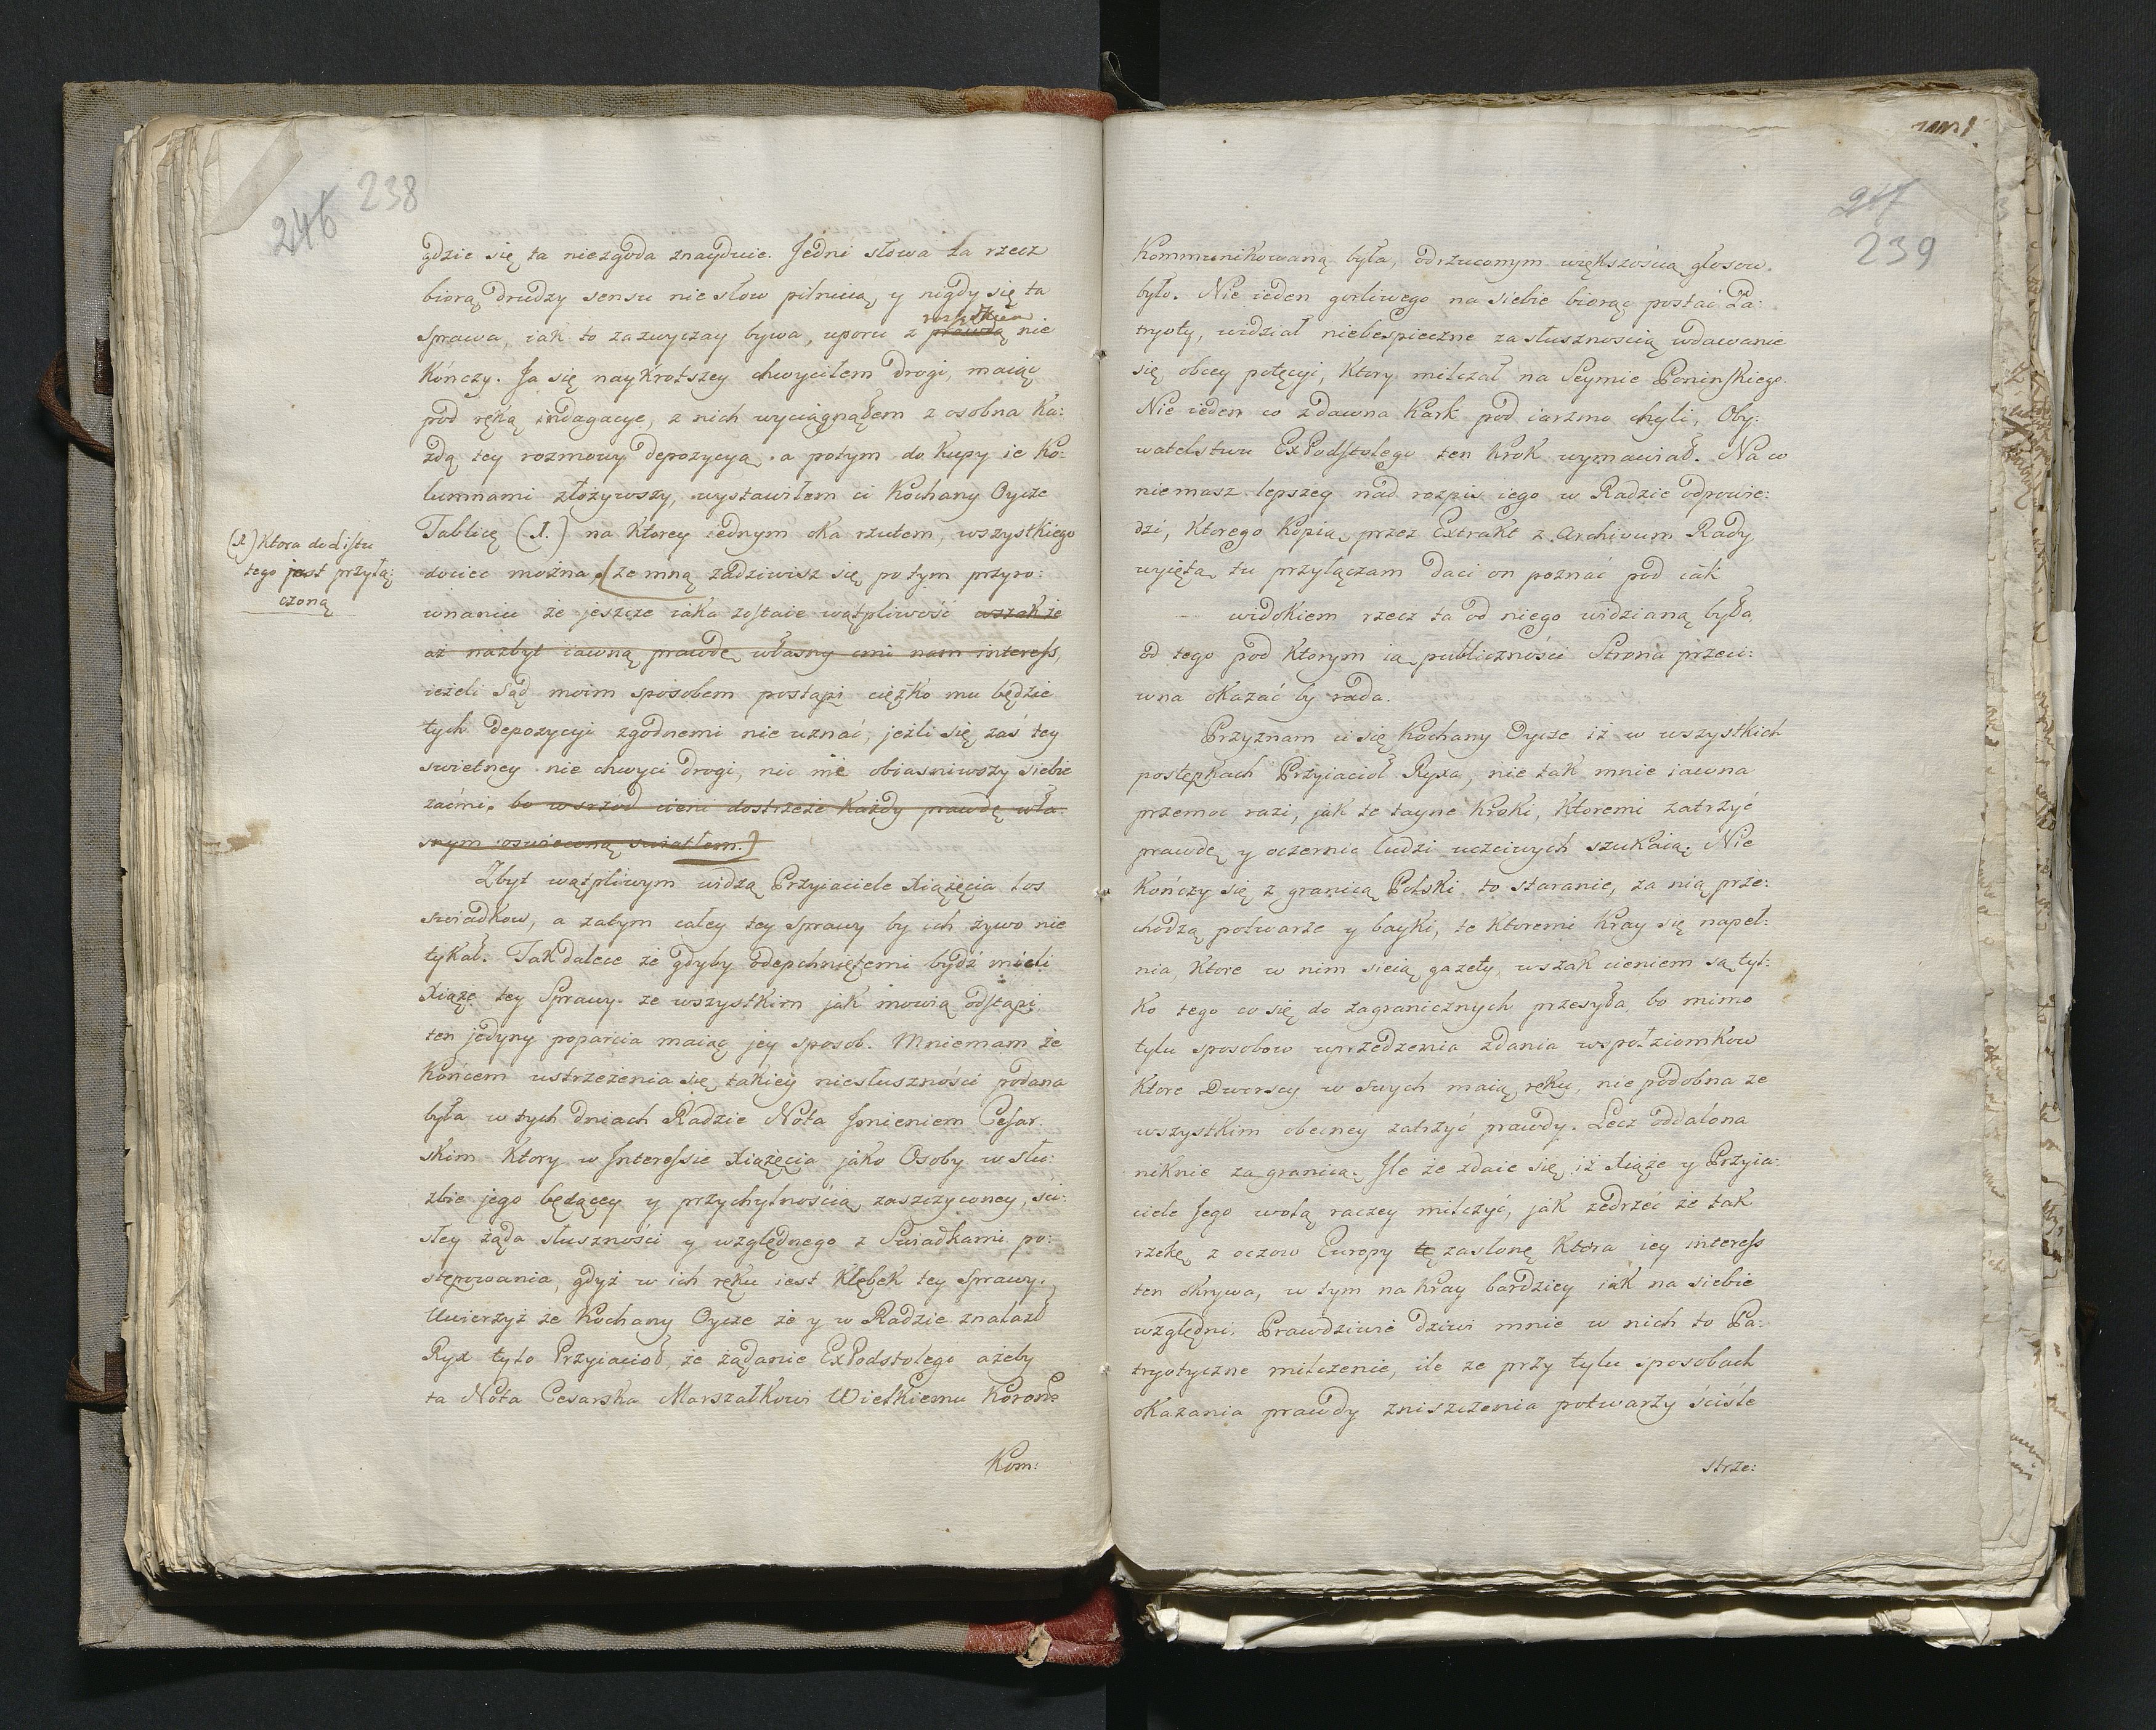 246 238
gdzie się ta niezgoda znayduie. Jedni słowa za rzecz
biorą drudzy sensu nie słow pilnuią y nigdy się ta
sprawa, iak to zazwyczay bywa, uporu z prawdą nie
kończy. Ja się naykrotszey chwyciłem drogi, maiąc
pod ręką indagacye, z nich wyciągnąłem z osobna Ka:
żdą tey rozmowy depozycyą, a potym do kupy ie Ko:
lumnami złożywszy, wystawiłem ci Kochany Oycze
Tablicę (A.) na ktorey iednym oka rzutem, wszystkiego
dociec można. (ze mną zadziwisz się po tym przyro:
wnaniu że jeszcze iaka zostaie wątpliwość wszakże
aż nazbyt iawną prawdę własny cmi nam interess,
ieżeli Sąd moim sposobem postąpi ciężko mu będzie
tych depozycyi zgodnemi nie uznać, jeżli się zaś tey
swietney nie chwyci drogi, nic nie obiasniwszy siebie
zaćmi. bo wsrzod cieni dostrzeże każdy prawdę wła:
snym oswieconą swiatłem.)
(A) Ktora do listu
tego jest przyłą:
czoną
Zbyt wątpliwym widzą Przyiaciele Xiążęcia los
swiadkow, a zatym całey tey sprawy by ich żywo nie
tykał. Tak dalece że gdyby odepchniętemi bydź mieli
Xiąże tey Sprawy ze wszystkim jak mowią odstąpi,
ten jedyny poparcia maiąc jey sposob. Mniemam że
końcem ustrzeżenia się takiey niesłuszności podana
była w tych dniach Radzie Nota Jmieniem Cesar:
skim ktory w Interessie Xiążęcia jako Osoby w słu:
żbie jego będącey y przychylnością zaszczyconey, ści:
słey żąda słuszności y względnego z Swiadkami po:
stępowania, gdyż w ich ręku iest kłębek tey sprawy.
Uwierzyż że Kochany Oycze że y w Radzie znalazł
Ryx tylo Przyiacioł, że żądanie ExPodstolego ażeby
ta Nota Cesarska Marszałkowi Wielkiemu Koron:
Kom:
247
239
Kommunikowaną była, odrzuconym większością głosow
było. Nie ieden gorliwego na siebie biorąc postać Pa:
tryoty, widział niebespieczne za słusznością wdawanie
się obcey potęcyi, ktory milczał na Seymie Poninskiego.
Nie ieden co zdawna kark pod iarzmo chyli, Oby:
watelstwu ExPodstolego ten krok wymawiał. Na co
niemasz lepszey nad rozpis iego w Radzie odpowie:
dzi, ktorego kopią przez Extrakt z Archivum Rady
wyiętą tu przyłączam da ci on poznać pod iak
widokiem rzecz ta od niego widzianą była,
od tego pod ktorym ią publiczności Strona przeci:
wna okazać by rada.
Przyznam ci się Kochany Oycze iż w wszystkich
postępkach Przyiacioł Ryxa, nie tak mnie iawna
przemoc razi, jak te tayne kroki, ktoremi zatrzyć
prawdę y oczernic ludzi uczciwych szukaią. Nie
kończy się z granicą Polski to staranie, za nią prze:
chodzą potwarze y bayki, te ktoremi kray się napeł:
nia, ktore w nim sieią gazety, wszak cieniem są tyl:
ko tego co się do zagranicznych przesyła, bo mimo
tylu sposobow uprzedzenia zdania wspołziomkow
ktore Dworscy w swych maią ręku, nie podobna ze
wszystkim obecney zatrzyć prawdy. Lecz oddalona
niknie za granicą. Jle że zdaie się iż Xiąże y Przyia:
ciele Jego wolą raczey milczyć, jak zedrzeć że tak
rzekę z oczow Europy tę zasłonę ktora iey interess
ten okrywa, w tym na kray bardziey iak na siebie
względni. Prawdziwie dziwi mnie w nich to Pa:
tryotyczne milczenie, ile ze przy tylu sposobach
okazania prawdy zniszczenia potwarzy ściśle
strze: